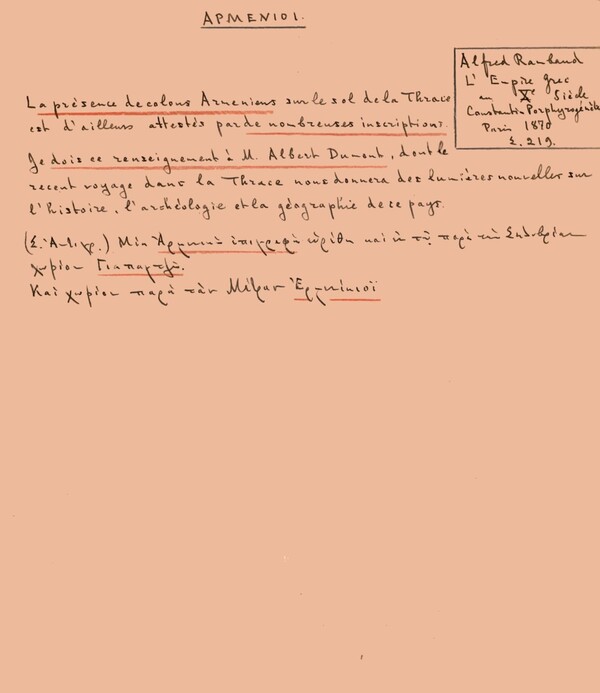 ΑΡΜΕΝΙΟΙ.
Alfred Rambaud
L'Empire Grec
au Xe Siècle
Constantin Porphyrogénète
Paris 1870
Σ. 219.
La présence de colons Arméniens sur le sol de la Thrace
est d'ailleurs attestés par de nombreuses inscriptions.
Je dois ce renseignement à M. Albert Dumont, dont le
recent voyage dans la Thrace nous donnera des lumières nouvelles sur
l'histoire, l'archéologie et la géographie de ce pays.
Μία Ἀρμενικὴ ἐπιγραφὴ εὑρέθη καὶ ἐν τῷ παρὰ τὴν Σηλυβρίαν
χωρίον
Καὶ χωρίον παρὰ τὴν